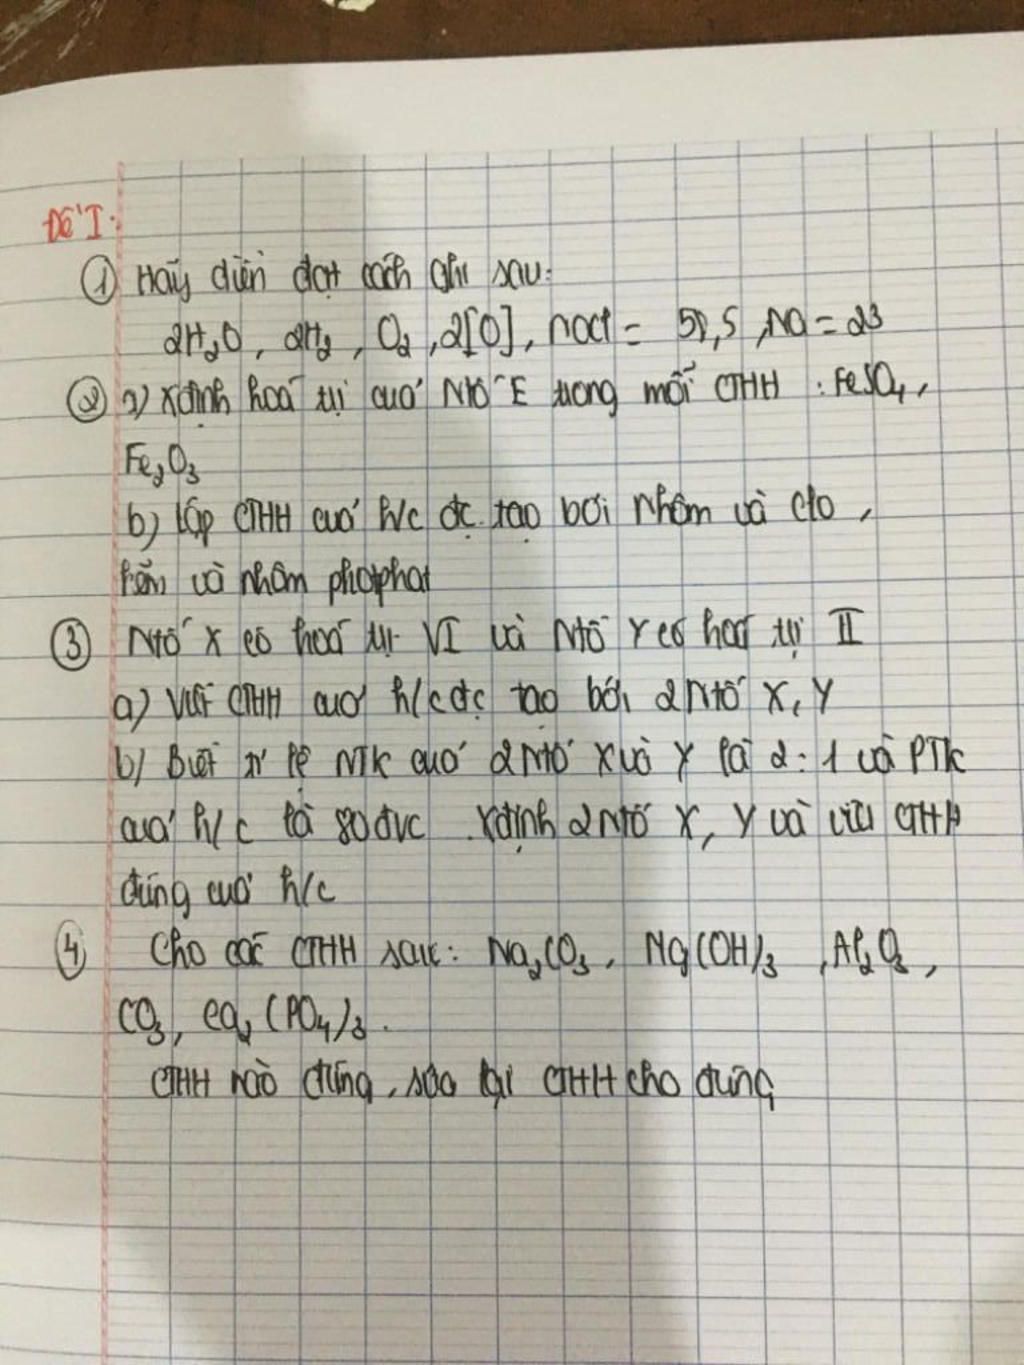 Đề I:
① Hãy diễn đạt cách ghi sau:
2H₂O, 2H₂, O₂, 2[O], NaCl = 58,5, Na = 23
② a) Xđịnh hoá trị của Ntố E trong mỗi CTHH: FeSO₄,
Fe₂O₃
b) Lập CTHH của h/c đc tạo bởi nhôm và clo,
và nhóm photphat
③ Ntố X có hoá trị VI và Ntố Y có hoá trị II
a) Viết CTHH của h/c đc tạo bởi 2 Ntố X, Y
b) Biết tỉ lệ NTK của 2 Ntố X và Y là 2:1 và PTK
của h/c là 80 đvc. Xđịnh 2 Ntố X, Y và viết CTHH
đúng của h/c
④ Cho các CTHH sau: Na₂CO₃, Mg(OH)₃, Al₂O₃,
CO₃, Ca₂(PO₄)₃.
CTHH nào đúng, sửa lại CTHH cho đúng